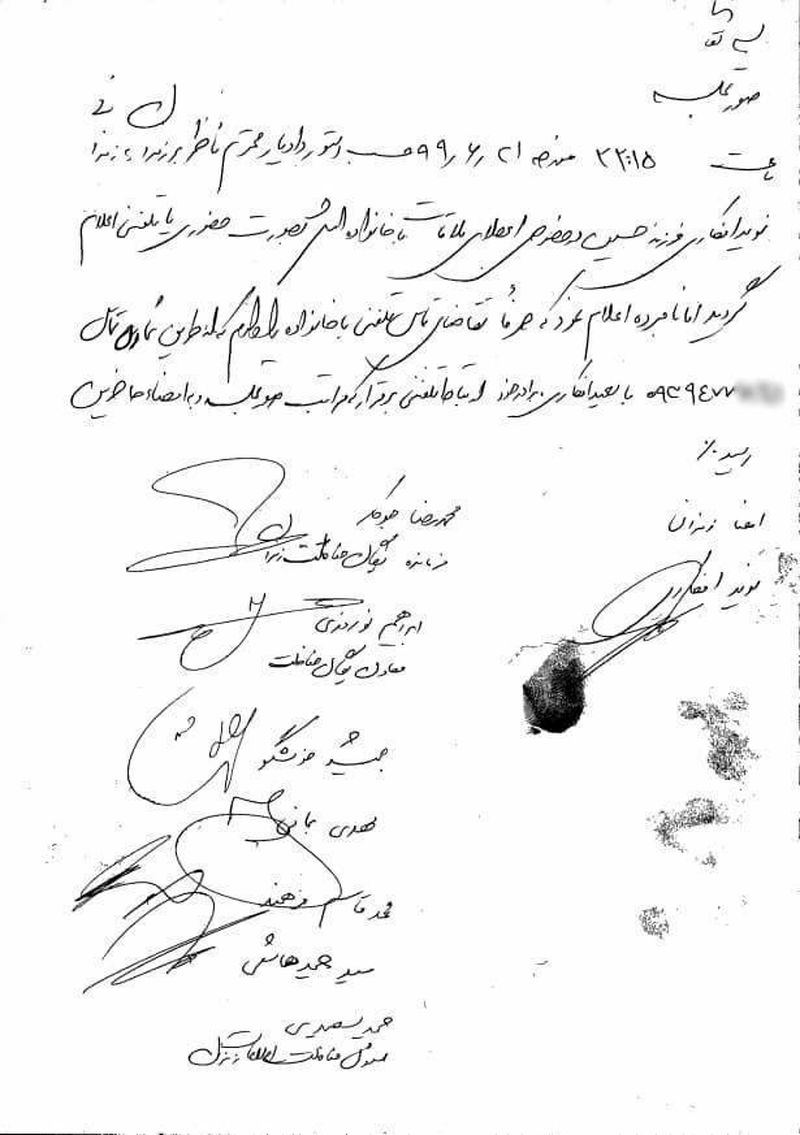 بسمه تعالی
صورتجلسه
ساعت ۲۲:۱۵ مورخه ۹۹/۶/۲۱ حسب دستور دادیار محترم ناظر بر زندان به زندانی
نوید افکاری فرزند حسین در خصوص اعطای ملاقات با خانواده اش بصورت حضوری یا تلفنی اعلام
گردید اما نامبرده اعلام نمود که صرفاً تقاضای تماس تلفنی با خانواده را دارم که از طریق شماره
۰۹۳۹۴۷۷ با سعید افکاری برادر خود ارتباط تلفنی برقرار که مراتب صورتجلسه و به امضاء حاضرین
رسید./
امضا زندانی
نوید افکاری
محمدرضا جوکار
فرمانده یگان حفاظت زندان
ابراهیم نوروزی
معاون یگان حفاظت
جمشید
مهدی
محمد قاسم
سید حمید هاشمی
حمید
مسئول حفاظت اطلاعات زندان